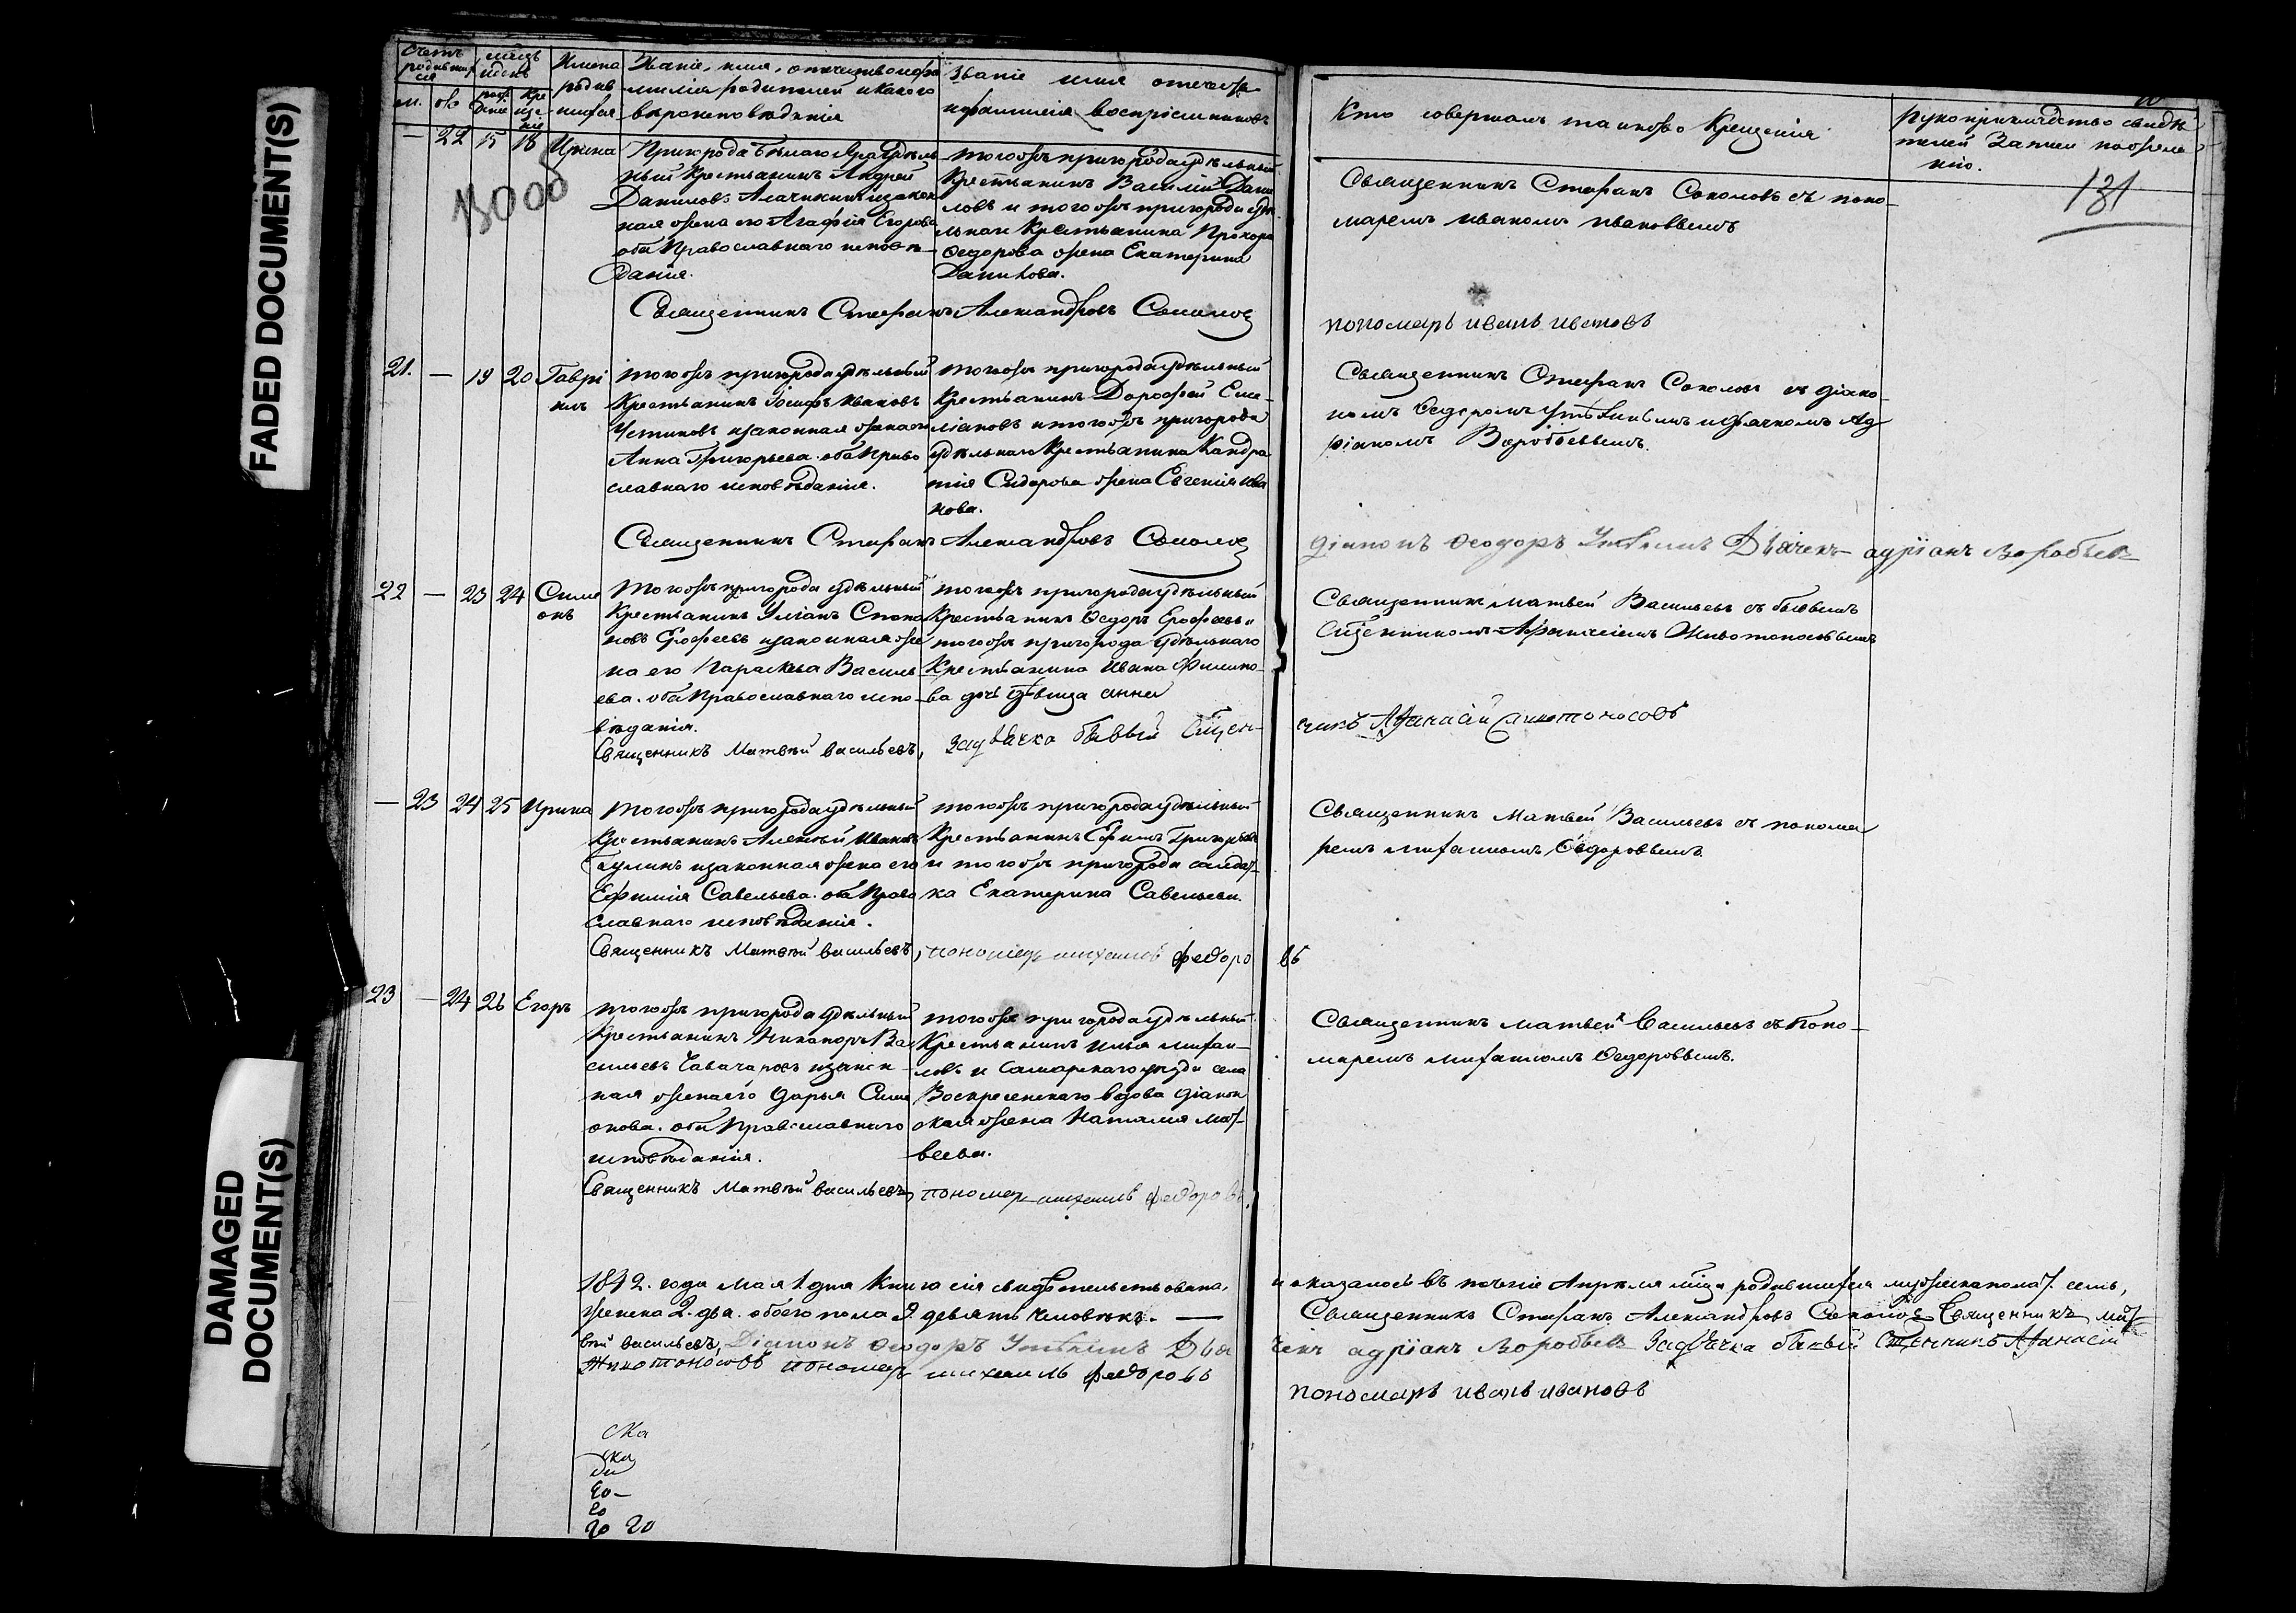 FADED DOCUMENT(S)
DAMAGED
DOCUMENT(S)
Счетъ родившихся
м. ж
Имена родившихся
Званіе, имя, отчество и фамилія родителей и какого вѣроисповѣданія
Званіе имя отчество и фамилія воспріемниковъ
Кто совершалъ таинство Крещенія
Рукоприкладство свидѣтелей записи по желанію.
131
— 22 15 18 Ирина
Пригорода Бѣлаго Яра удѣль
ный Крестьянинъ Андрей
Даниловъ изакон
ная жена его Агафія Егорова
оба Православнаго исповѣ-
данія.
тогожъ пригорода удѣльный
Крестьянинъ Василій Дани
ловъ и тогожъ пригорода удѣ
льнаго Крестьянина Прохора
Ѳедорова жена Екатерина
Данилова.
Священникъ Стефанъ Соколовъ съ поно-
маремъ Иваномъ Ивановымъ
Священникъ Стефанъ Александровъ Соколов
пономарь иванъ ивановъ
21. — 19 20 Гаврі
илъ
тогожъ пригорода удѣльный
Крестьянинъ Іосифъ Ивановъ
Устиновъ изаконная жена его
Анна Григорьева. оба Право
славнаго исповѣданія.
тогожъ пригорода удѣльный
Крестьянинъ Дорофей Еме-
ліановъ и тогожъ пригорода
удѣльнаго Крестьянина Кандра
тія Сидорова жена Евгенія Ива
нова.
Священникъ Стефанъ Соколовъ съ діако-
номъ Ѳедоромъ и дьячкомъ Ад
ріаномъ Воробьевымъ.
Священникъ Стефанъ Александровъ Соколов
Діаконъ Ѳеодоръ Дьячекъ адріанъ Воробьевъ
22 — 23 24 Симе
онъ
Тогожъ пригорода удѣльный
Крестьянинъ Уліанъ Степа
новъ Ерофеевъ изаконная же
на его Параскева Василь
ева. оба Православнаго испо-
вѣданія.
тогожъ пригорода удѣльный
Крестьянинъ Ѳедоръ Ерофеевъ и
тогожъ пригорода удѣльнаго
Крестьянина Ивана Филипо-
ва дочь дѣвица Анна
Священникъ Матвей Васильевъ съ бывшимъ
Сщенникомъ Афанасіемъ Животоносовымъ
Священникъ Матвѣй васильевъ, задьячка бывый Сщен-
никъ Афанасій Животоносовъ
— 23 24 25 Ирина
Тогожъ пригорода удѣльный
Крестьянинъ Алексѣй Ивановъ
Гулинъ изаконная жена его
Ефимія Савельева. оба Право
славнаго исповѣданія.
тогожъ пригорода удѣльный
Крестьянинъ Ефимъ Григорьевъ
и тогожъ пригорода салдат-
ка Екатерина Савельева.
Священникъ Матвей Васильевъ съ понома
ремъ Михаиломъ Ѳедоровымъ
Священникъ Матвѣй васильевъ, пономарь михаилъ федоро
въ
23 — 24 26 Егоръ
тогожъ пригорода удѣльный
Крестьянинъ Никаноръ Ва
сильевъ изакон-
ная жена его Дарья Симе
онова. оба Православнаго
исповѣданія.
тогожъ пригорода удѣльный
Крестьянинъ Илья Михаи-
ловъ и Самарскаго уѣзда села
Воскресенскаго вдова діакон
ская жена Наталія Мат-
веева.
Священникъ матвей Васильевъ съ Поно-
маремъ Михаиломъ Ѳедоровымъ.
Священникъ Матвѣй васильевъ, пономарь михаилъ федоровъ
1842. года Мая 1. дня Книга сія свидѣтельствована, и оказалось въ теченіе Апрѣля мѣсяца родившихся мужеска пола 7. семь,
женска 2. два. обоего пола 9 девять человѣкъ. — Священникъ Стефанъ Александровъ Соколов Священникъ мат
вѣй васильевъ, Діаконъ Ѳеодоръ Дья чекъ адріанъ Воробьевъ Задьячка бывый Сщенникъ Афанасій
Животоносовъ пономарь михаилъ федоровъ пономарь иванъ ивановъ
ска
ска
го—
го
го го